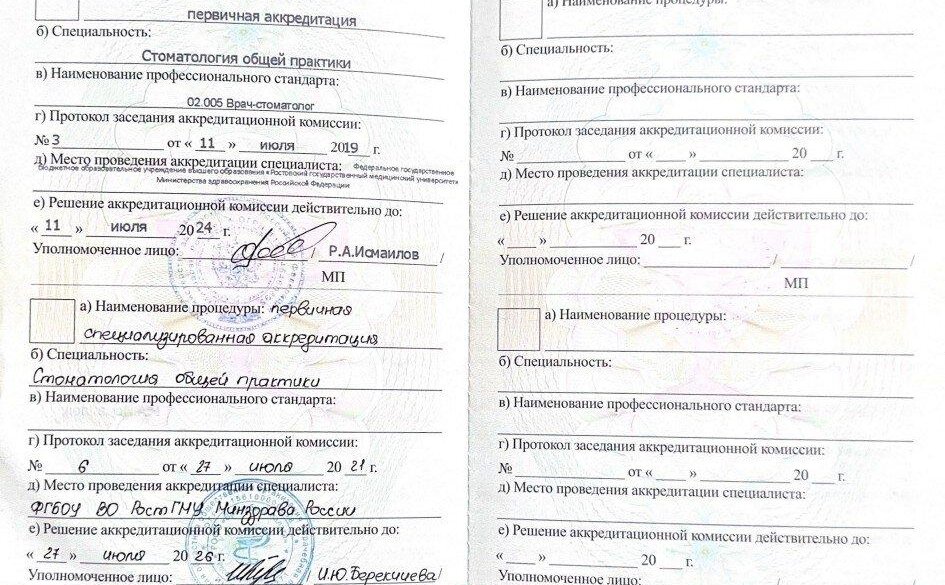 первичная аккредитация
б) Специальность:
Стоматология общей практики
в) Наименование профессионального стандарта:
02.005 Врач-стоматолог
г) Протокол заседания аккредитационной комиссии:
№ 3 от « 11 » июля 2019 г.
д) Место проведения аккредитации специалиста: Федеральное государственное
бюджетное образовательное учреждение высшего образования «Ростовский государственный медицинский университет»
Министерства здравоохранения Российской Федерации
е) Решение аккредитационной комиссии действительно до:
« 11 » июля 2024 г.
Уполномоченное лицо: / Р.А.Исмаилов /
МП
а) Наименование процедуры: первичная
специализированная аккредитация
б) Специальность:
Стоматология общей практики
в) Наименование профессионального стандарта:
г) Протокол заседания аккредитационной комиссии:
№ 6 от « 27 » июля 20 21 г.
д) Место проведения аккредитации специалиста:
ФГБОУ ВО РостГМУ Минздрава России
е) Решение аккредитационной комиссии действительно до:
« 27 » июля 20 26 г.
Уполномоченное лицо: / И.Ю.Берекчиева/
а) Наименование процедуры:
б) Специальность:
в) Наименование профессионального стандарта:
г) Протокол заседания аккредитационной комиссии:
№ от « » 20 г.
д) Место проведения аккредитации специалиста:
е) Решение аккредитационной комиссии действительно до:
« » 20 г.
Уполномоченное лицо: / /
МП
а) Наименование процедуры:
б) Специальность:
в) Наименование профессионального стандарта:
г) Протокол заседания аккредитационной комиссии:
№ от « » 20 г.
д) Место проведения аккредитации специалиста:
е) Решение аккредитационной комиссии действительно до:
« » 20 г.
Уполномоченное лицо: / /